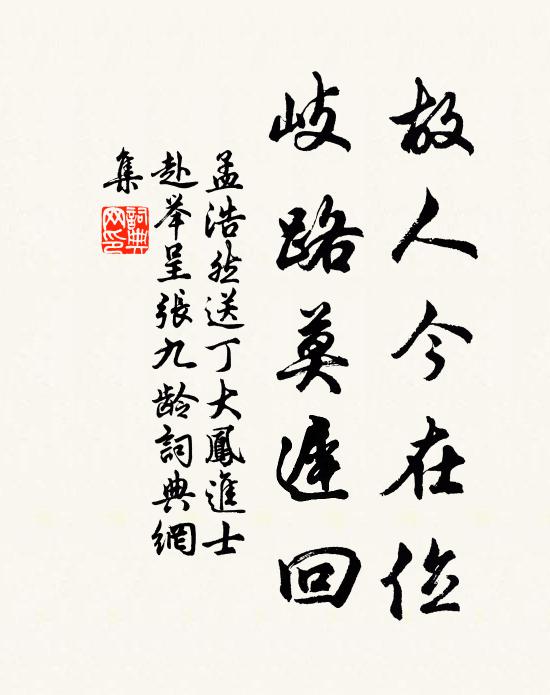 故人今在位
岐路莫遲回
孟浩然送丁大鳳進士
赴举呈張九龄詞典網
集
詞典
网印